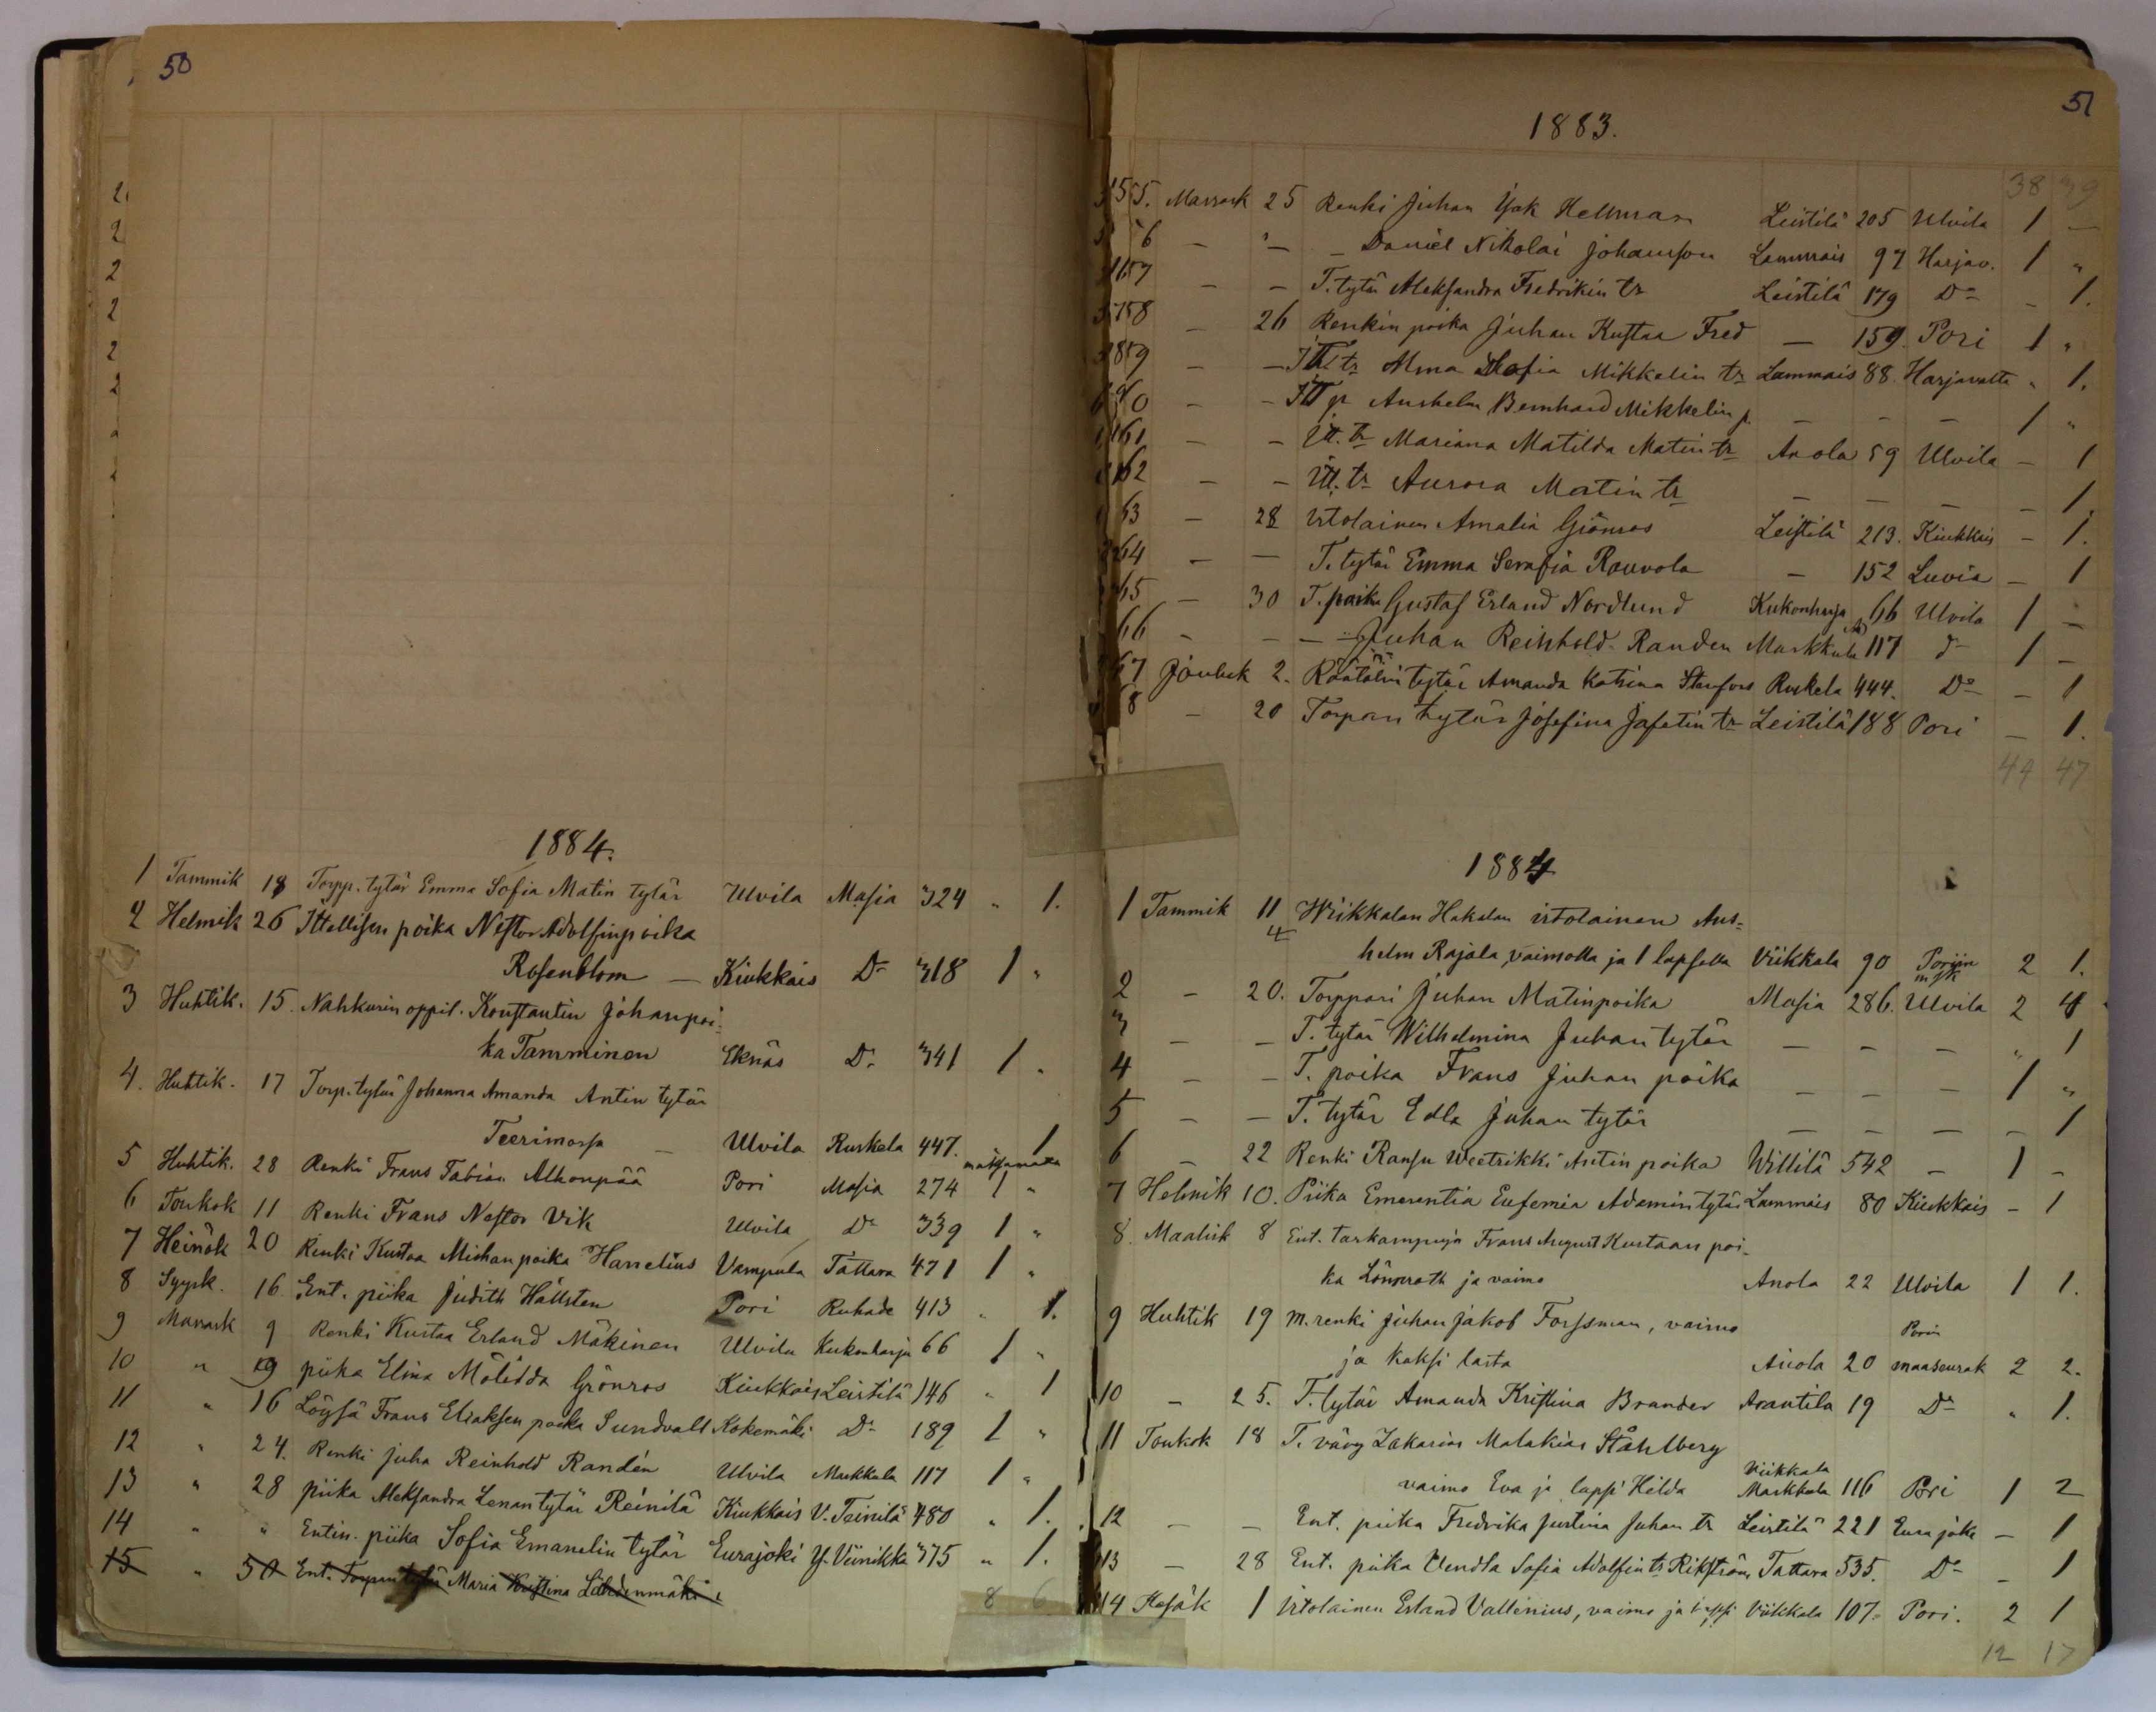 50
1884.
1 Tammik 18 Torpp. tytär Emma Sofia Matin tytär Ulvila Masia 324 " 1.
2 Helmik 26 Ittellisen poika Nestor Adolfinpoika
Rosenblom — Kiukkais Do 318 1 "
3 Huhtik. 15. Nahkurin oppil. Konstantin Johanpoi-
ka Tamminen Eknäs Do 341 1 "
4. Huhtik. 17 Torp. tytär Johanna Amanda Antin tytär
Teerimossa — Ulvila Ruskela 447. 1
5 Huhtik. 28 Renki Frans Fabian Alhonpää Pori Masia 274 1 "
6 Toukok 11 Renki Frans Nestor Vik Ulvila Do 339 1 "
7 Heinäk 20 Renki Kustaa Mishan poika Hanelius Vampula Tattara 471 1 "
8 Syysk. 16. Ent. piika Judith Hällsten Pori Ruhade 413 " 1.
9 Marrask 9 Renki Kustaa Erland Mäkinen Ulvila Kukonharja 66 1 "
10 " 19 piika Elina Mätilda Grönroos Kiukkais Leistilä 146 " 1
11 " 16 Löysä Frans Eliaksen poika Sundvall Kokemäki Do 189 1 "
12 " 24. Renki Juha Reinhold Randén Ulvila Markkula 117 1 "
13 " 28 piika Aleksandra Lenan tytär Reinilä Kiukkais V. Teinilä 480 " 1.
14 " " Entin. piika Sofia Emanelin tytär Eurajoki Y. Viinikka 375 " 1.
15 " 30 Ent. Torpan tytär Maria Kristina Lähdenmäki
8 6
51
1883.
38 39
55. Marrask 25 Renki Juhan Jak Hellman Leistilä 205 Ulvila 1 —
56 — "— — Daniel Nikolai Johansson Lammais 97 Harjav. 1 "
57 — — T. tytär Aleksandra Fredrikin tr Leistilä 179 Do — 1.
58 — 26 Renkin poika Juhan Kustaa Fred — 159. Pori 1 "
59 — — Itt. tr Alma Sofia Mikkelin tr Lammais 88. Harjavalta " 1.
60 — — Itt p Anshelm Bernhard Mikkelin p. — — — 1 "
61 — — Itt. tr Mariana Matilda Matin tr Anola 59 Ulvila — 1
62 — — Itt. tr Aurora Matin tr — — — — 1.
63 — 28 Irtolainen Amalia Grönroos Leistilä 213. Kiukkais — 1.
64 — — T. tytär Emma Serafia Rouvola — 152 Luvia — 1
65 — 30 T. poika Gustaf Erland Nordlund Kukonharja 66 Ulvila 1 —
66 — — — Juhan Reinhold Randen Markkula 117 d— 1 —
67 Jouluk 2. Räätälin tytär Amanda Katrina Stenfors Ruskela 444. Do — 1
8 — 20 Torpan tytär Josefina Jafetin tr Leistilä 188 Pori — 1.
44 47
1884
1 Tammik 11 Wiikkalan Hakalan irtolainen Ans-
helm Rajala, vaimolla ja 1 lapsella Viikkala 90 Poriin msk 2 1.
2 — 20. Torppari Juhan Matinpoika Masia 286. Ulvila 2 4
3 — — T. tytär Wilhelmina Juhan tytär — — — " 1
4 — — T. poika Frans Juhan poika — — — 1 "
5 — — T. tytär Edla Juhan tytär — — — — 1
6 — 22 Renki Ransu Weetrikki Antin poika Willilä 542 — 1 —
7 Helmik 10. Piika Emerentia Eufemia Adamin tytär Lammais 80 Kiukkais — 1
8. Maalisk 8 Ent. tarkampuja Frans August Kustaan poi-
ka Lönnroth ja vaimo Anola 22 Ulvila 1 1.
9 Huhtik 19 m. renki Juhan Jakob Forssman, vaimo
ja kaksi lasta Anola 20 Porin maaseurak 2 2.
10 — 25. T. tytär Amanda Kristina Brander Arantila 19 Do " 1.
11 Toukok 18 T. vävy Zakarias Malakias Ståhlberg
vaimo Eva ja lapsi Hilda Viikkala Markkula 116 Pori 1 2
12 — — Ent. piika Fredrika Justina Juhan tr Leistilä 221 Eurajoki — 1
13 — 28 Ent. piika Vendla Sofia Adolfin tr Rikström Tattara 535. Do — 1
14 Kesäk 1 Irtolainen Erland Vallenius, vaimo ja lapsi Viikkala 107. Pori. 2 1
12 17